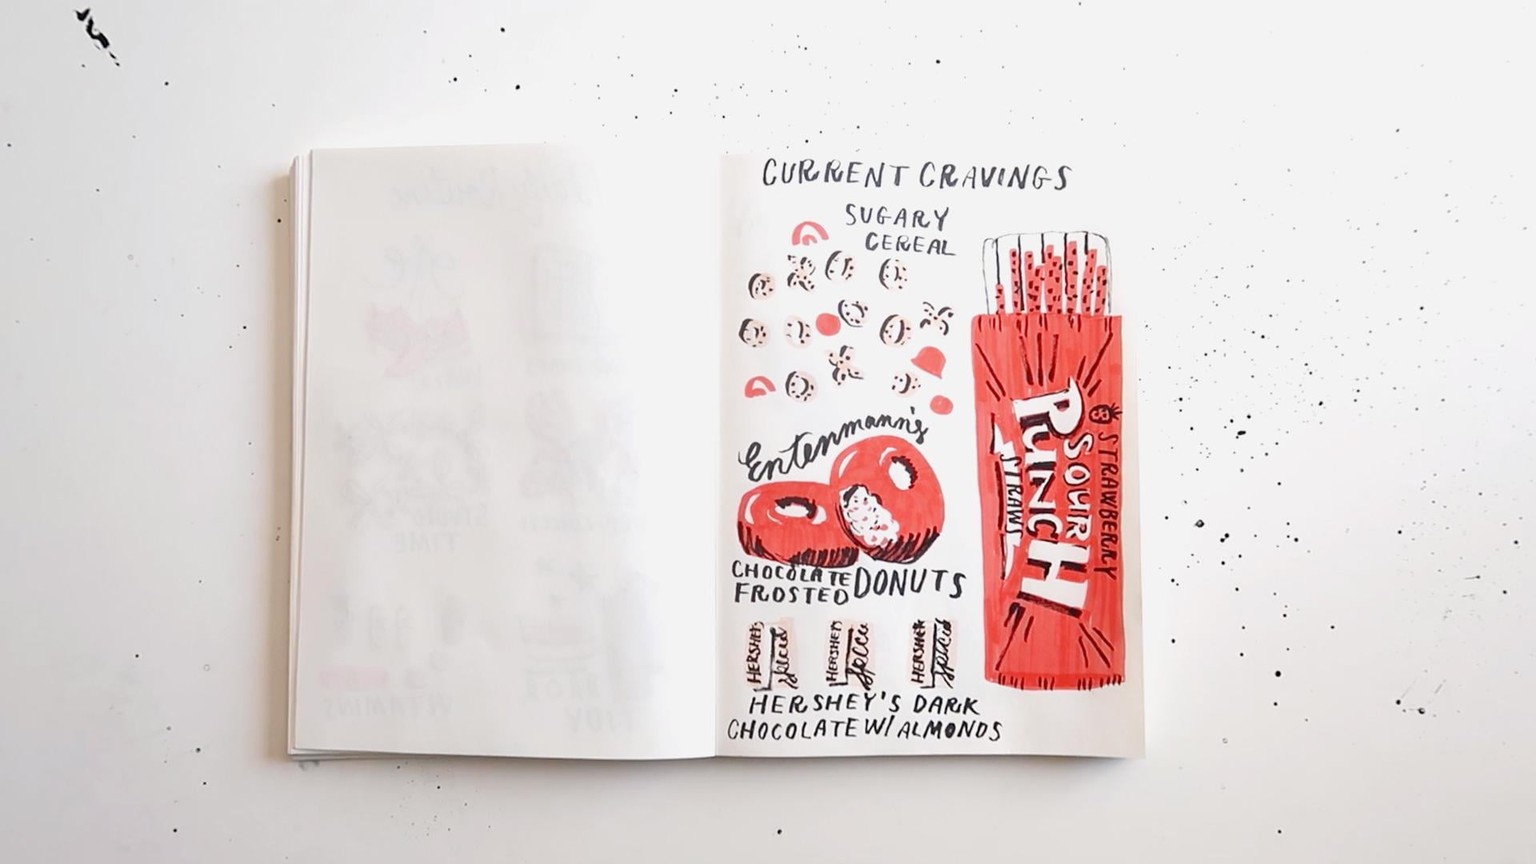 CURRENT CRAVINGS
SUGARY
CEREAL
Entenmann's
CHOCOLATE
FROSTED
DONUTS
STRAWBERRY
SOUR
PUNCH
STRAWS
HERSHEY'S
HERSHEY'S
HERSHEY'S
HERSHEY'S DARK
CHOCOLATE W/ ALMONDS
TIME
VITAMINS